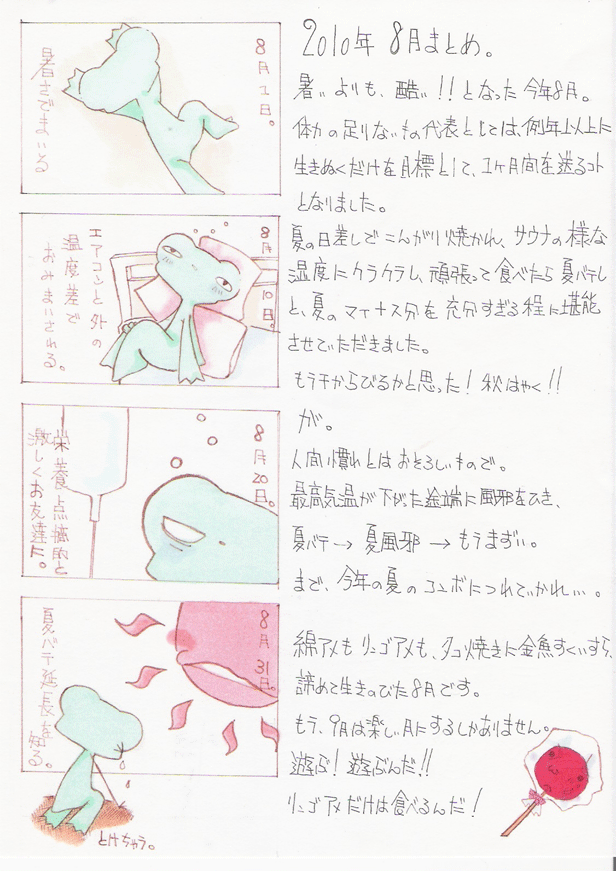 8月1日。
暑さでまいる
8月10日。
エアコンと外の
温度差で
おみまいされる。
8月20日。
栄養点滴と
激しくお友達に。
8月31日。
夏バテ延長を
知る。
とけちゃう。
2010年 8月まとめ。
暑いよりも、酷い!!となった今年8月。
体力の足りないもの代表としては、例年以上に
生きぬくだけを目標として、1ヶ月間を送るコト
となりました。
夏の日差しでこんがり焼かれ、サウナの様な
温度にクラクラし、頑張って食べたら夏バテし
と、夏のマイナス分を充分すぎる程に堪能
させていただきました。
もう干からびるかと思った!秋はやく!!
が。
人間慣れとはおそろしいもので。
最高気温が下がった途端に風邪をひき、
夏バテ→夏風邪→もうまずい。
まで、今年の夏のコンボにつれていかれ…。
綿アメもリンゴアメも、タコ焼きに金魚すくいすら、
諦めて生きのびた8月です。
もう、9月は楽しい月にするしかありません。
遊ぶ!遊ぶんだ!!
リンゴアメだけは食べるんだ!